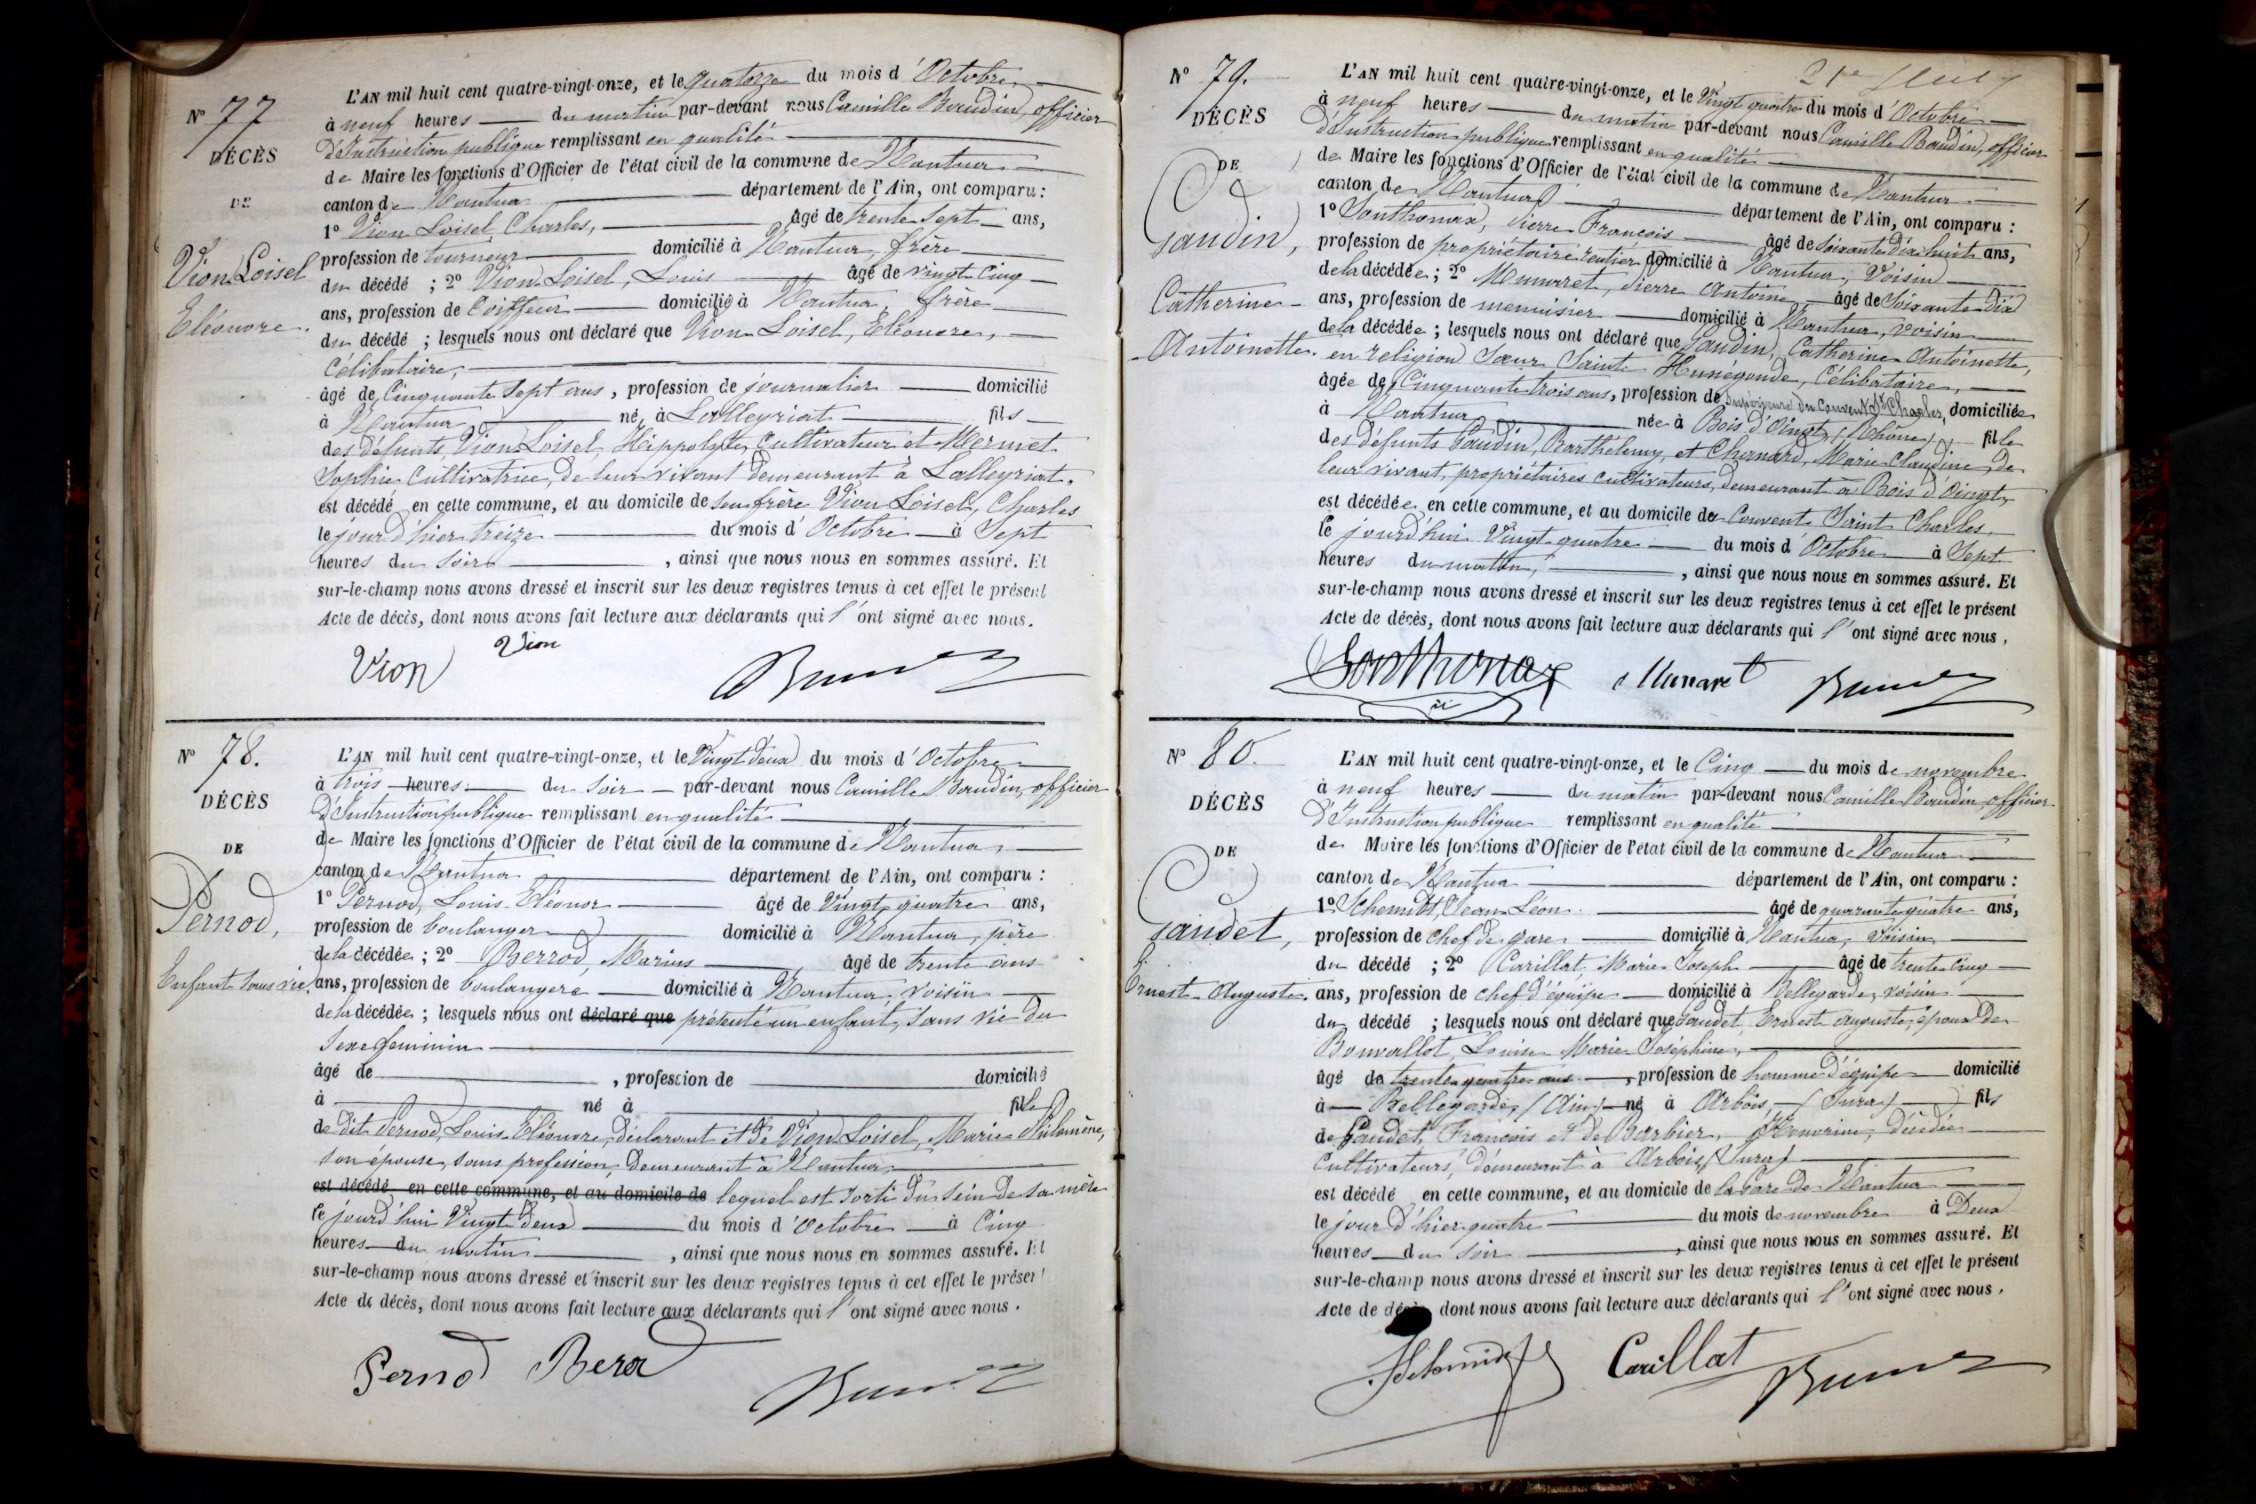 N° 77
DÉCÈS
DE
Vion Loisel
Eléonore.
L'AN mil huit cent quatre-vingt-onze, et le quatorze du mois d'Octobre
à neuf heures du matin par-devant nous Camille Baudin, officier
d'Instruction publique remplissant en qualité
de Maire les fonctions d'Officier de l'état civil de la commune de Nantua
canton de Nantua département de l'Ain, ont comparu :
1° Vion Loisel, Charles, âgé de trente sept ans,
profession de tourneur domicilié à Nantua, frère
du décédé ; 2° Vion Loisel, Louis âgé de vingt cinq
ans, profession de Coiffeur domicilié à Nantua, frère
du décédé ; lesquels nous ont déclaré que Vion Loisel, Eléonore,
Célibataire,
âgé de Cinquante sept ans, profession de journalier domicilié
à Nantua né à Lalleyriat fils
des défunts Vion Loisel, Hippolyte, Cultivateur et Mermet
Sophie Cultivatrice, de leur vivant demeurant à Lalleyriat.
est décédé en cette commune, et au domicile de son frère Vion Loisel, Charles
le jour d'hier treize du mois d'Octobre à Sept
heures du soir, ainsi que nous nous en sommes assuré. Et
sur-le-champ nous avons dressé et inscrit sur les deux registres tenus à cet effet le présent
Acte de décès, dont nous avons fait lecture aux déclarants qui l'ont signé avec nous.
Vion Vion
N° 78.
DÉCÈS
DE
Pernod,
Enfant sans vie.
L'AN mil huit cent quatre-vingt-onze, et le Vingt deux du mois d'Octobre
à trois heures du soir par-devant nous Camille Baudin, officier
d'Instruction publique remplissant en qualité
de Maire les fonctions d'Officier de l'état civil de la commune de Nantua
canton de Nantua département de l'Ain, ont comparu :
1° Pernod, Louis Eléonor âgé de Vingt quatre ans,
profession de boulanger domicilié à Nantua, père
de la décédée ; 2° Berrod, Marius âgé de trente ans
ans, profession de boulangere domicilié à Nantua, voisin
de la décédée ; lesquels nous ont déclaré que présenté un enfant, sans vie du
sexe féminin
âgé de , profession de domicilié
à né à fille
de dit Pernod, Louis Eléonore, déclarant et de Vion Loisel, Marie Philomène,
son épouse, sans profession, demeurant à Nantua
est décédé en cette commune, et au domicile de lequel est sorti du sein de sa mère
le jourd'hui Vingt deux du mois d'Octobre à Cinq
heures du matin, ainsi que nous nous en sommes assuré. Et
sur-le-champ nous avons dressé et inscrit sur les deux registres tenus à cet effet le présent
Acte de décès, dont nous avons fait lecture aux déclarants qui l'ont signé avec nous.
Pernod Berod
N° 79.
DÉCÈS
DE
Gaudin,
Catherine
Antoinette.
L'AN mil huit cent quatre-vingt-onze, et le Vingt quatre du mois d'Octobre
à neuf heures du matin par-devant nous Camille Baudin, officier
d'Instruction publique remplissant en qualité
de Maire les fonctions d'Officier de l'état civil de la commune de Nantua
canton de Nantua département de l'Ain, ont comparu :
1° Sonthonax, Pierre François âgé de Soixante dix huit ans,
profession de propriétaire rentier domicilié à Nantua, Voisin
de la décédée ; 2° Munarret, Pierre Antoine âgé de Soixante dix
ans, profession de menuisier domicilié à Nantua, voisin
de la décédée ; lesquels nous ont déclaré que Gaudin, Catherine Antoinette,
en religion Sœur Sainte Hunegonde, Célibataire,
âgée de Cinquante trois ans, profession de Supérieure du Couvent St Charles, domiciliée
à Nantua née à Bois d'Oingt (Rhône) fille
des défunts Gaudin, Barthélemy, et Chanard, Marie Claudine, de
leur vivant, propriétaires cultivateurs, demeurant à Bois d'Oingt,
est décédée en cette commune, et au domicile de Couvent Saint Charles,
le jourd'hui Vingt quatre du mois d'Octobre à Sept
heures du matin, ainsi que nous nous en sommes assuré. Et
sur-le-champ nous avons dressé et inscrit sur les deux registres tenus à cet effet le présent
Acte de décès, dont nous avons fait lecture aux déclarants qui l'ont signé avec nous.
Sonthonax Munaret
N° 80.
DÉCÈS
DE
Gaudet,
Ernest Auguste.
L'AN mil huit cent quatre-vingt-onze, et le Cinq du mois de novembre
à neuf heures du matin par-devant nous Camille Baudin, officier
d'Instruction publique remplissant en qualité
de Maire les fonctions d'Officier de l'état civil de la commune de Nantua
canton de Nantua département de l'Ain, ont comparu :
1° Schemidt, Jean Léon âgé de quarante quatre ans,
profession de Chef de gare domicilié à Nantua, Voisin
du décédé ; 2° Carillat, Marie Joseph âgé de trente cinq
ans, profession de chef d'équipe domicilié à Bellegarde, voisin
du décédé ; lesquels nous ont déclaré que Gaudet, Ernest Auguste, époux de
Bonvallot, Louise Marie Joséphine,
âgé de trente quatre ans, profession de homme d'équipe domicilié
à Bellegarde, (Ain) né à Arbois, (Jura) fils
de Gaudet, François et de Barbier, Honorine, décédée
Cultivateurs, demeurant à Arbois, (Jura)
est décédé en cette commune, et au domicile de la Gare de Nantua
le jour d'hier quatre du mois de novembre à Deux
heures du soir, ainsi que nous nous en sommes assuré. Et
sur-le-champ nous avons dressé et inscrit sur les deux registres tenus à cet effet le présent
Acte de décès dont nous avons fait lecture aux déclarants qui l'ont signé avec nous.
Schmidt Carillat